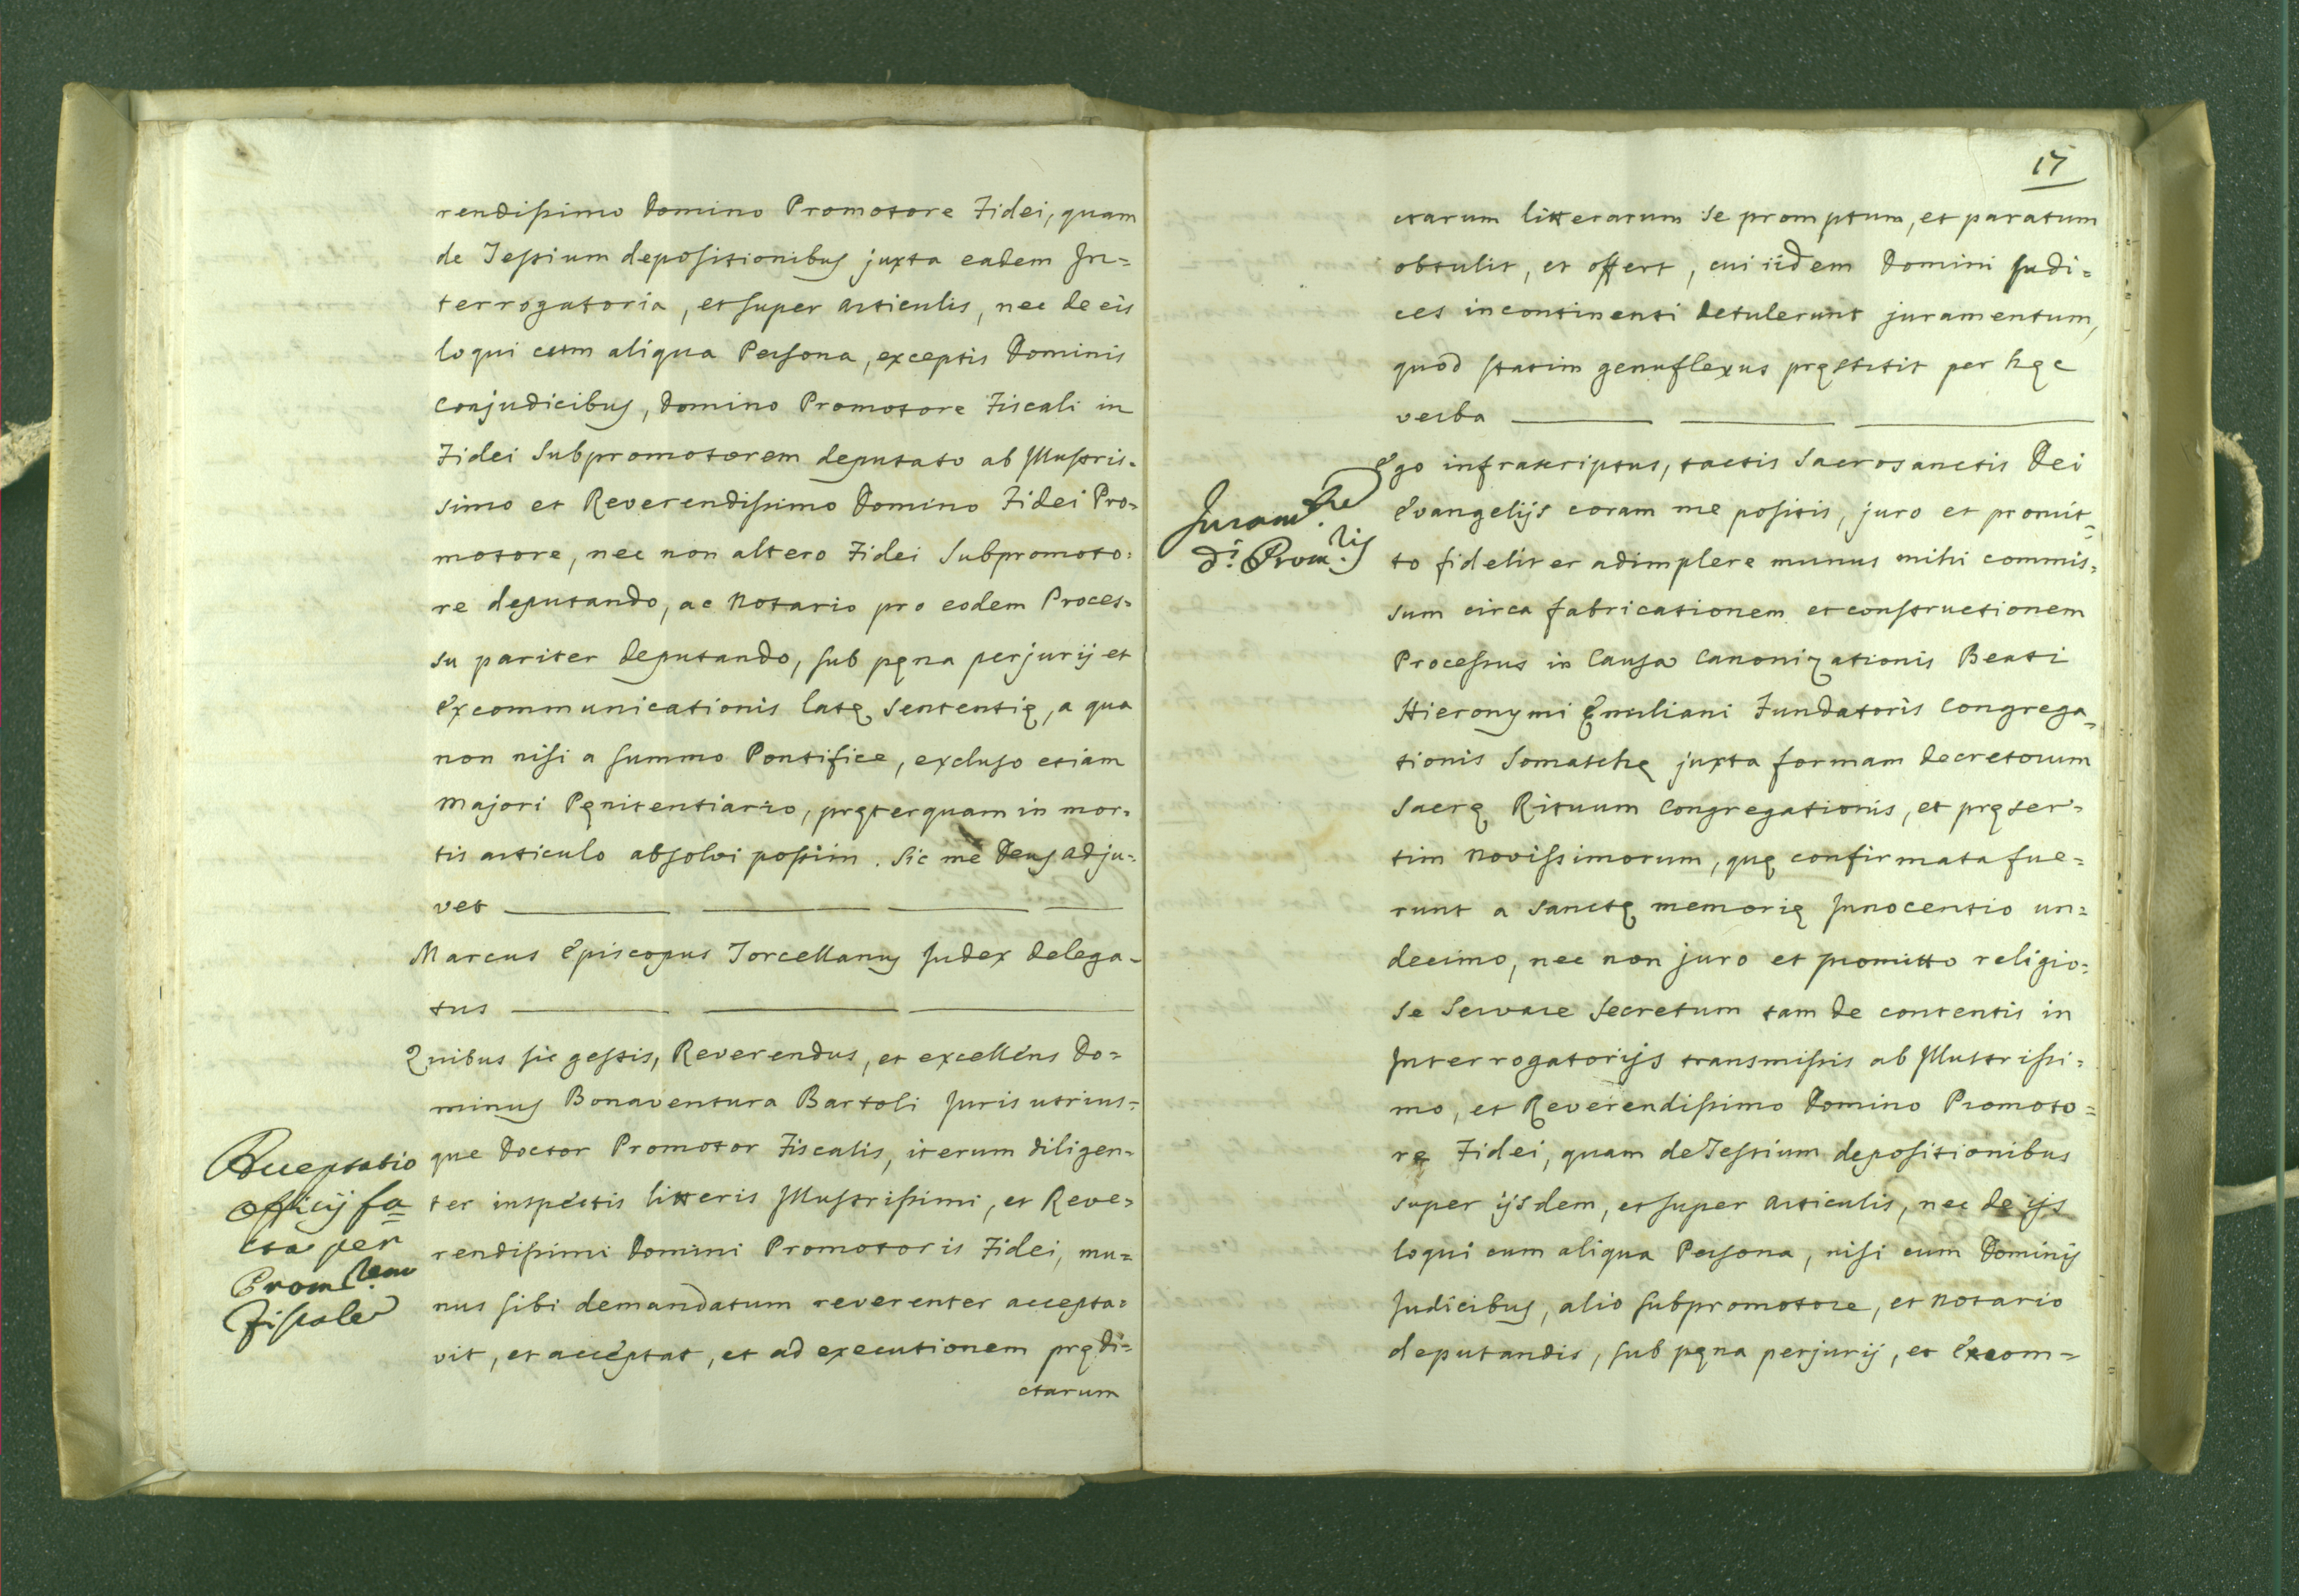 rendissimo Domino Promotore Fidei, quam
de Testium depositionibus juxta eadem In=
terrogatoria, et super articulis, nec de eis
loqui cum aliqua Persona, exceptis Dominis
Conjudicibus, Domino Promotore Fiscali in
Fidei Subpromotorem deputato ab Illustris=
simo et Reverendissimo Domino Fidei Pro=
motore, nec non altero Fidei Subpromoto=
re deputando, ac Notario pro eodem Proces=
su pariter deputando, sub pęna perjurij et
Excommunicationis latę sententię, a qua
non nisi a summo Pontifice, excluso etiam
Majori Pęnitentiario, pręterquam in mor=
tis articulo absolvi possim. Sic me Deus adju=
vet
Marcus Episcopus Torcellanus Judex delega=
tus
Quibus sic gestis, Reverendus, et excellens Do=
minus Bonaventura Bartoli Juris utrius=
que Doctor Promotor Fiscalis, iterum diligen=
ter inspectis litteris Illustrissimi, et Reve=
rendissimi Domini Promotoris Fidei, mu=
nus sibi demandatum reverenter accepta=
vit, et acceptat, et ad executionem prędi=
ctarum
Acceptatio
officij fa=
cta per
Prom.rem
Fiscale
17
ctarum litterarum se promptum, et paratum
obtulit, et offert, cui iidem Domini Judi=
ces incontinenti detulerunt juramentum,
quod statim genuflexus pręstitit per hęc
verba
Ego infrascriptus, tactis Sacrosanctis Dei
Evangelijs coram me positis, juro et promit=
to fideliter adimplere munus mihi commis=
sum circa fabricationem et constructionem
Processus in Causa Canonizationis Beati
Hieronymi Ęmiliani Fundatoris Congrega=
tionis Somaschę juxta formam decretorum
Sacrę Rituum Congregationis, et pręser=
tim novissimorum, quę confirmata fue=
runt a sanctę memorię Innocentio un=
decimo, nec non juro et promitto religio=
se servare secretum tam de contentis in
Interrogatorijs transmissis ab Illustrissi=
mo, et Reverendissimo Domino Promoto=
re Fidei, quam de Testium depositionibus
super ijsdem, et super articulis, nec de ijs
loqui cum aliqua Persona, nisi cum Dominis
Judicibus, alio subpromotore, et notario
deputandis, sub pęna perjurij, et Excom=
Juram.
d.i Prom.ris